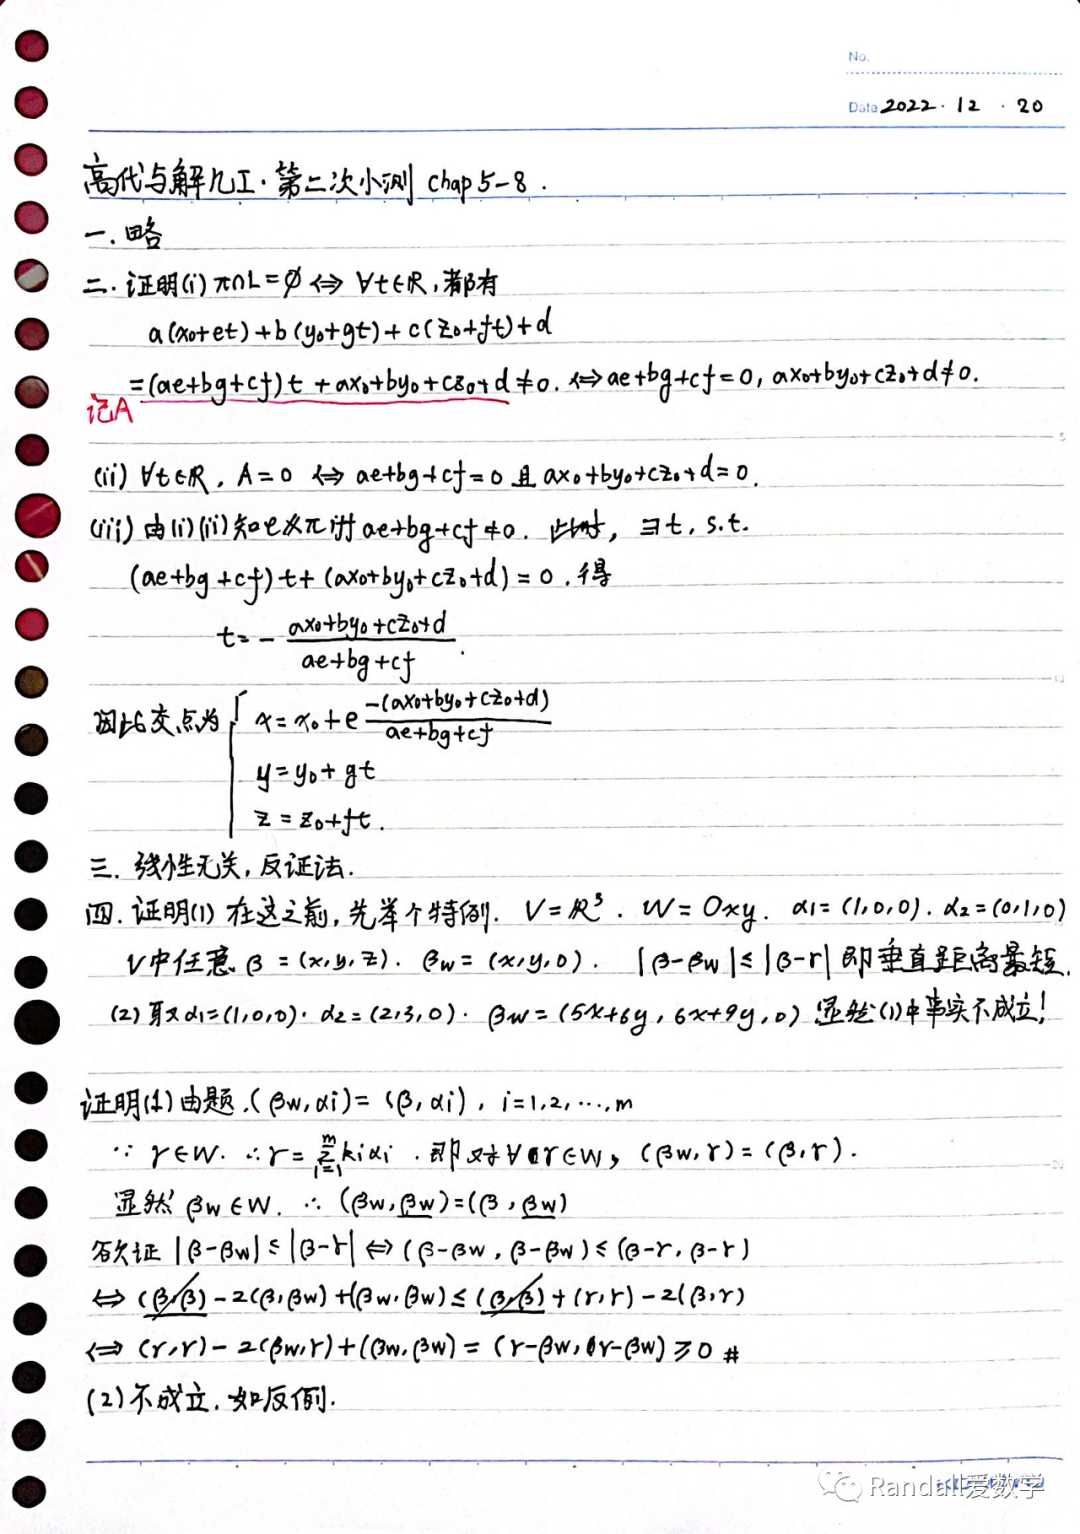 No.
Date 2022 · 12 · 20
高代与解几I · 第二次小测 chap 5-8.
一. 略
二. 证明(i) π∩L=∅ ⇔ ∀t∈R, 都有
a(x₀+et)+b(y₀+gt)+c(z₀+ft)+d
=(ae+bg+cf)t+ax₀+by₀+cz₀+d≠0. ⇔ae+bg+cf=0, ax₀+by₀+cz₀+d≠0.
记A
5
(ii) ∀t∈R, A=0 ⇔ ae+bg+cf=0 且 ax₀+by₀+cz₀+d=0.
(iii) 由(i)(ii)知 ae+bg+cf≠0. 此时, ∃t, s.t.
(ae+bg+cf)t+(ax₀+by₀+cz₀+d)=0. 得
t=-(ax₀+by₀+cz₀+d)/(ae+bg+cf).
10
因此交点为 { x=x₀+e -(ax₀+by₀+cz₀+d)/(ae+bg+cf)
y=y₀+gt
z=z₀+ft.
三. 线性无关, 反证法.
四. 证明(1) 在这之前, 先举个特例. V=R³. W=Oxy. α1=(1,0,0). α2=(0,1,0)
V中任意 β=(x,y,z). βw=(x,y,0). |β-βw|≤|β-r| 即垂直距离最短.
(2) 取α1=(1,0,0). α2=(2,3,0). βw=(5x+6y, 6x+9y, 0) 显然(1)中事实不成立!
证明(1) 由题. (βw,αi)=(β,αi), i=1,2,…,m
∵ r∈W. ∴r=∑_{i=1}^{m} kiαi. 即对∀r∈W, (βw,r)=(β,r).
20
显然 βw∈W. ∴ (βw,βw)=(β,βw)
欲证 |β-βw|≤|β-r| ⇔ (β-βw, β-βw)≤(β-r, β-r)
⇔ (β,β)-2(β,βw)+(βw,βw)≤(β,β)+(r,r)-2(β,r)
⇔ (r,r)-2(βw,r)+(βw,βw)=(r-βw, r-βw)≥0 #
(2) 不成立. 如反例.
Randall爱数学